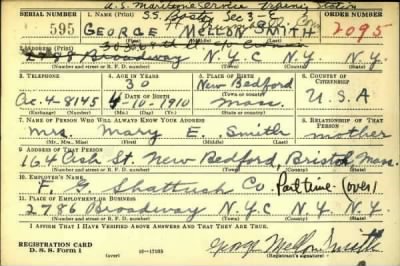 U.S. Maritime Service Training Station
SERIAL NUMBER
1. NAME (Print)
ORDER NUMBER
S.S. Boston Sec 3 E
595
GEORGE MELLON SMITH
2095
(First) (Middle) (Last)
2. ADDRESS (Print)
2788 Broadway N.Y.C N.Y. N.Y.
(Number and street or R. F. D. number) (Town) (County) (State)
3. TELEPHONE
4. AGE IN YEARS
5. PLACE OF BIRTH
6. COUNTRY OF CITIZENSHIP
30
New Bedford
Ac. 4-8145
DATE OF BIRTH
(Town or county)
4-10-1910
Mass.
U.S.A
(Exchange) (Number)
(Mo.) (Day) (Yr.)
(State or country)
7. NAME OF PERSON WHO WILL ALWAYS KNOW YOUR ADDRESS
8. RELATIONSHIP OF THAT PERSON
Mrs. Mary E. Smith mother
(Mr., Mrs., Miss) (First) (Middle) (Last)
9. ADDRESS OF THAT PERSON
164 Ash St. New Bedford, Bristol, Mass.
(Number and street or R. F. D. number) (Town) (County) (State)
10. EMPLOYER'S NAME
F. G. Shattuck Co. Part time (over)
11. PLACE OF EMPLOYMENT OR BUSINESS
2786 Broadway N.Y.C N.Y. N.Y.
(Number and street or R. F. D. number) (Town) (County) (State)
I AFFIRM THAT I HAVE VERIFIED ABOVE ANSWERS AND THAT THEY ARE TRUE.
REGISTRATION CARD
D. S. S. Form 1
(over)
16-17105
George Mellon Smith
(Registrant's signature)